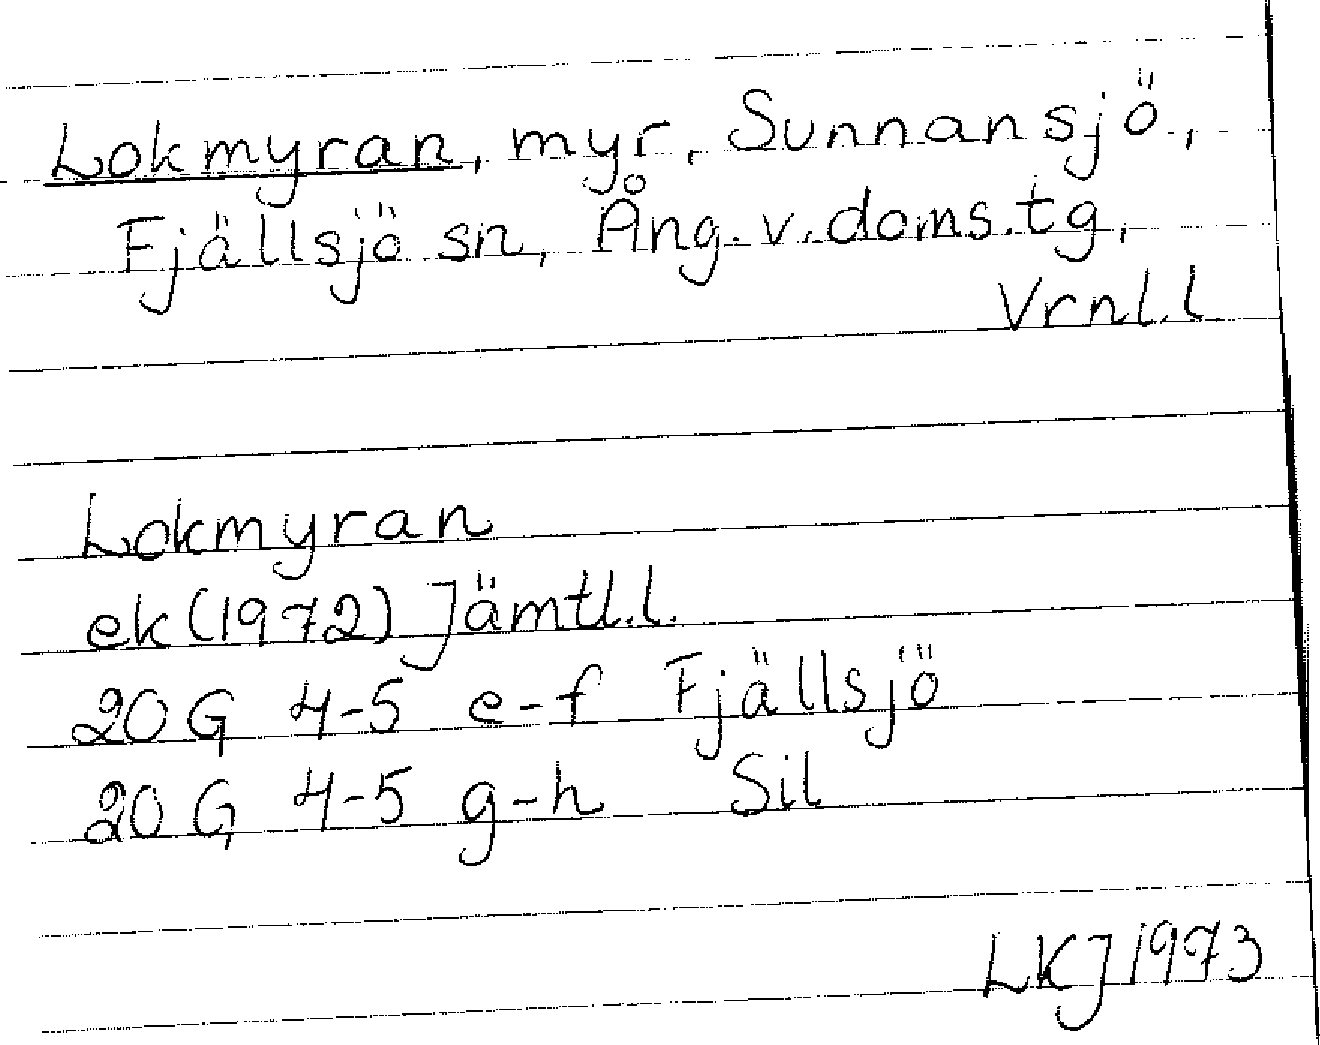 Lokmyran, myr, Sunnansjö,
Fjällsjö sn, Ång. v. doms.tg,
Vrnl.l
Lokmyran
ek (1972) Jämtl.l.
20 G 4-5 e-f Fjällsjö
20 G 4-5 g-h Sil
LKJ 1973